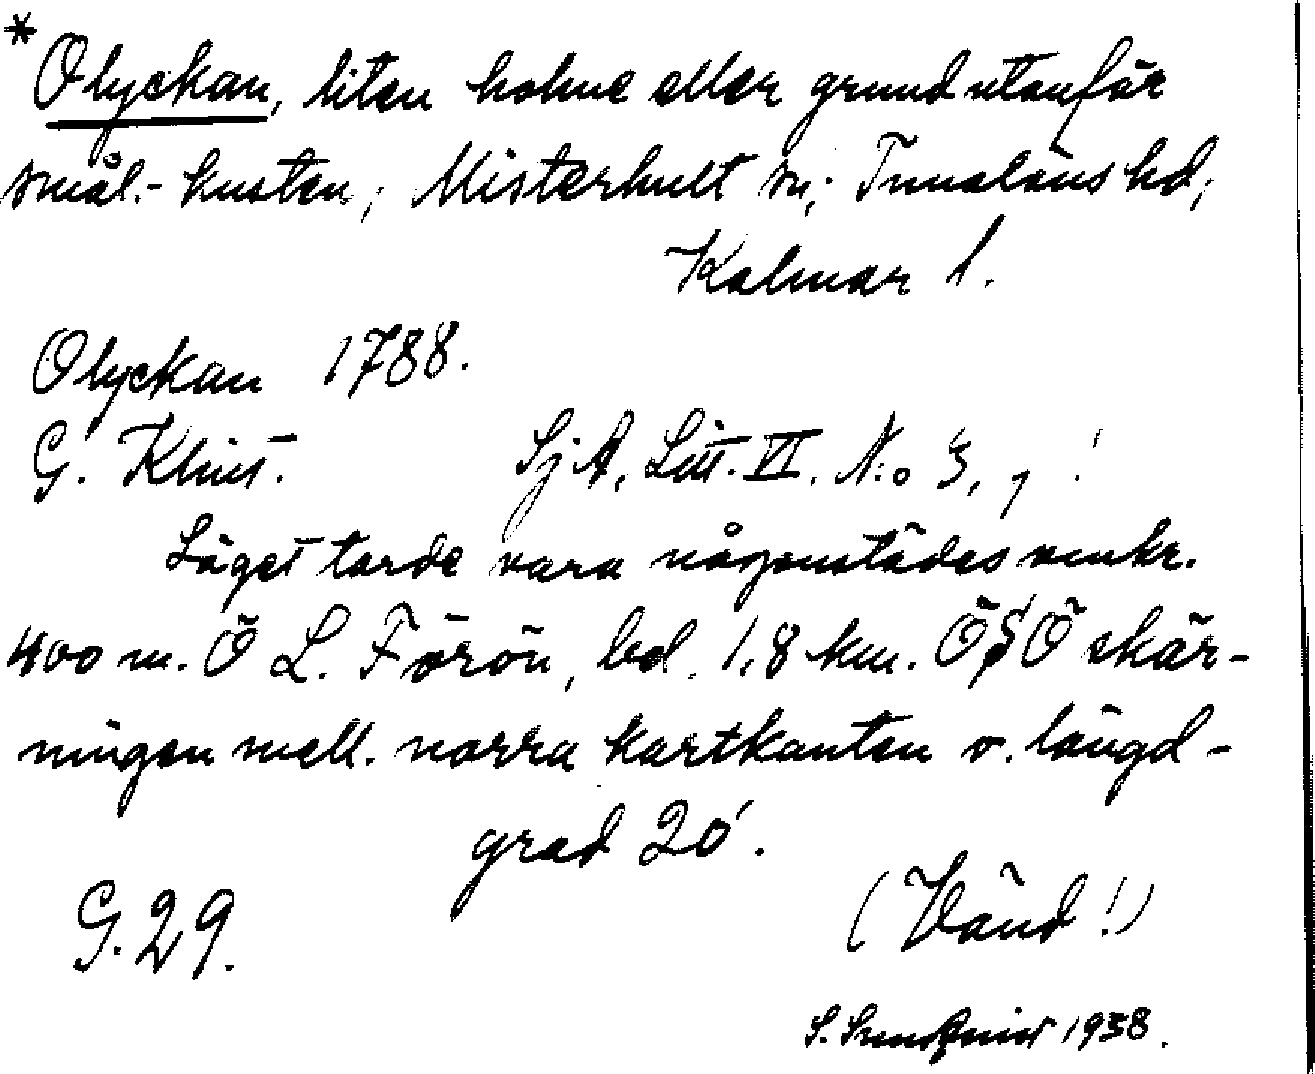 * Olyckan, liten holme eller grund utanför
smål.-kusten; Misterhult sn; Tunaläns hd;
Kalmar l.
Olyckan 1788.
G. Klint. SjA, Litt. VI. N:o 3,
Läget torde vara någonstädes omkr.
400 m. Ö L. Förön, bel. 1,8 km. ÖSÖ skär-
ningen mell. norra kartkanten o. längd-
grad 20'.
G. 29. (Vänd!)
S. Sundqvist 1938.